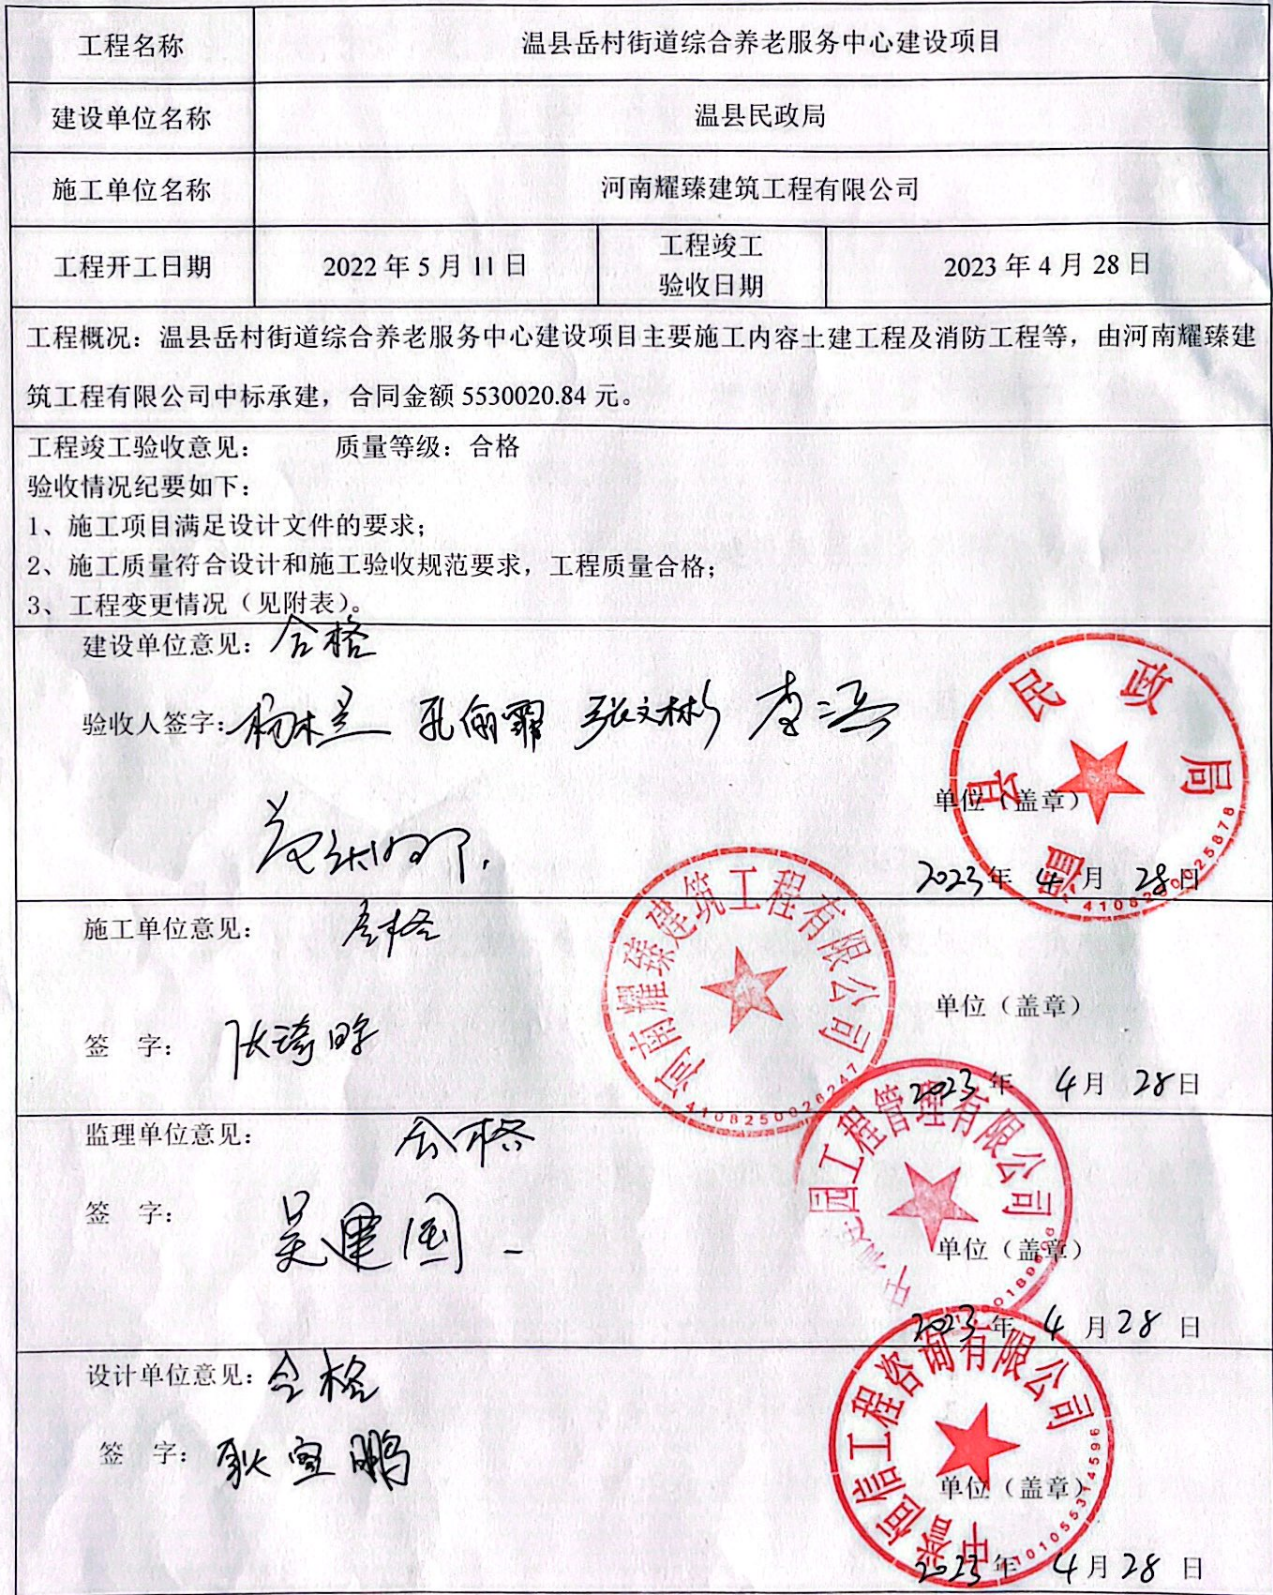 工程名称 温县岳村街道综合养老服务中心建设项目
建设单位名称 温县民政局
施工单位名称 河南耀臻建筑工程有限公司
工程开工日期 2022年5月11日 工程竣工
验收日期 2023年4月28日
工程概况：温县岳村街道综合养老服务中心建设项目主要施工内容土建工程及消防工程等，由河南耀臻建
筑工程有限公司中标承建，合同金额5530020.84元。
工程竣工验收意见： 质量等级：合格
验收情况纪要如下：
1、施工项目满足设计文件的要求；
2、施工质量符合设计和施工验收规范要求，工程质量合格；
3、工程变更情况（见附表）。
建设单位意见：合格
验收人签字： 张文彬
单位（盖章）
温县民政局
2023年4月28日
施工单位意见：合格
河南耀臻建筑工程有限公司
单位（盖章）
签 字：
2023年4月28日
监理单位意见：合格
工程管理有限公司
签 字：吴建国
单位（盖章）
2023年4月28日
设计单位意见：合格
工程咨询有限公司
签 字：
单位（盖章）
4101055314596
2023年4月28日